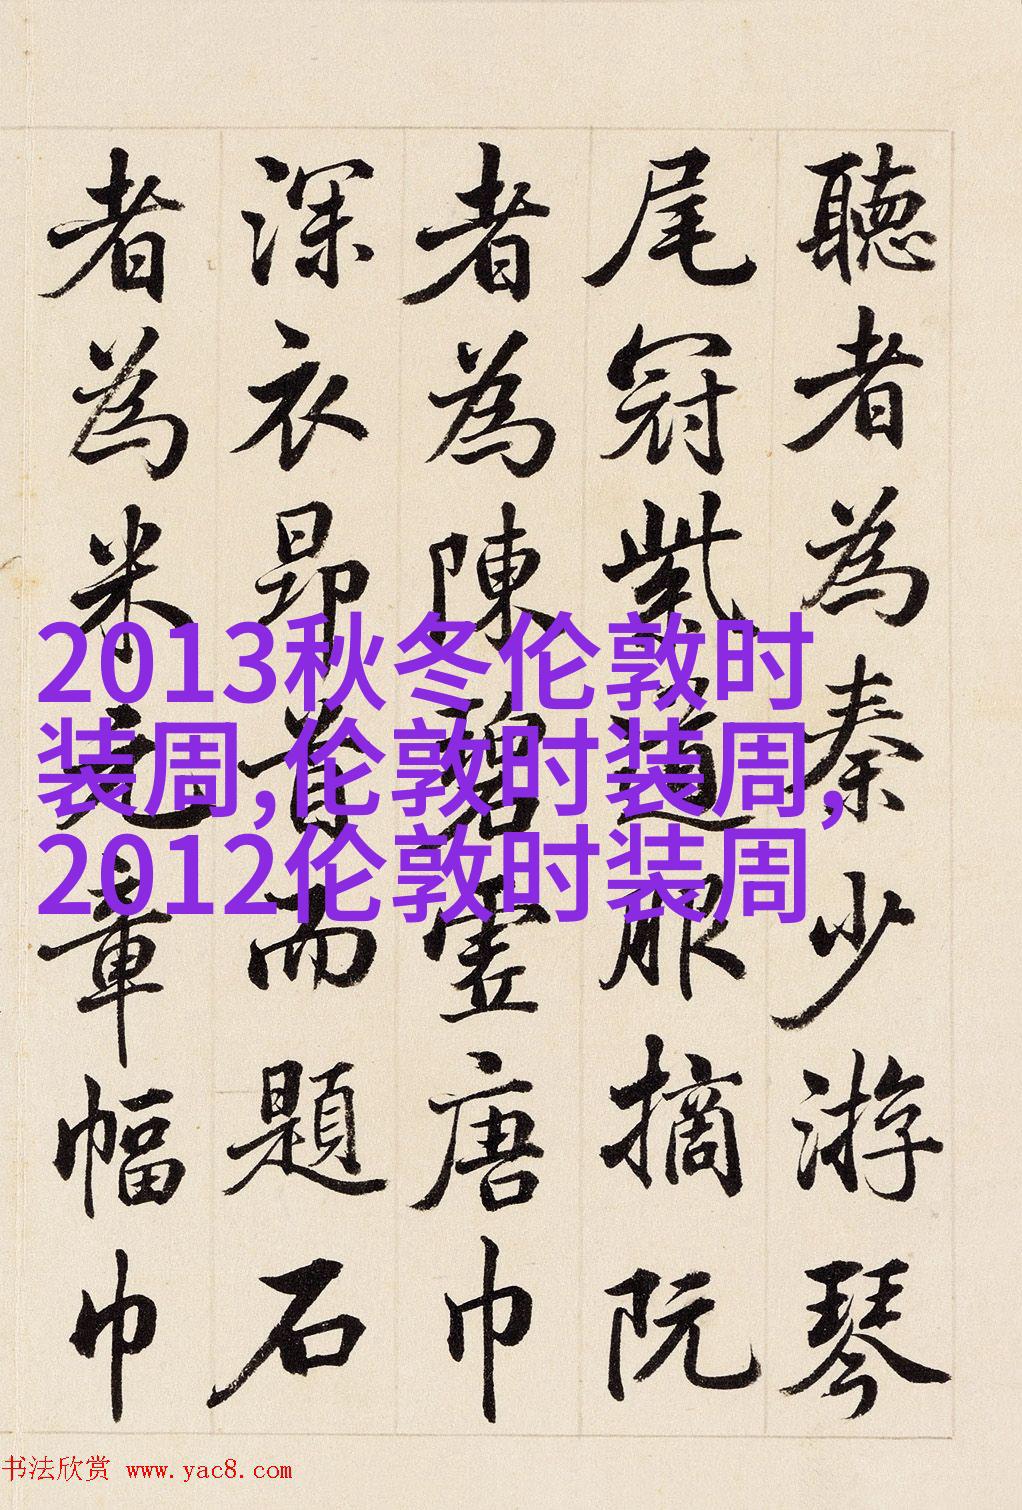 聽者為秦少游琴
尾冠紫道服摘阮
者為陳碧虛唐巾
深衣昂首而題石
者為米元章幅巾
2013秋冬伦敦时
装周,伦敦时装周,
2012伦敦时装周
书法欣赏 www.yac8.com